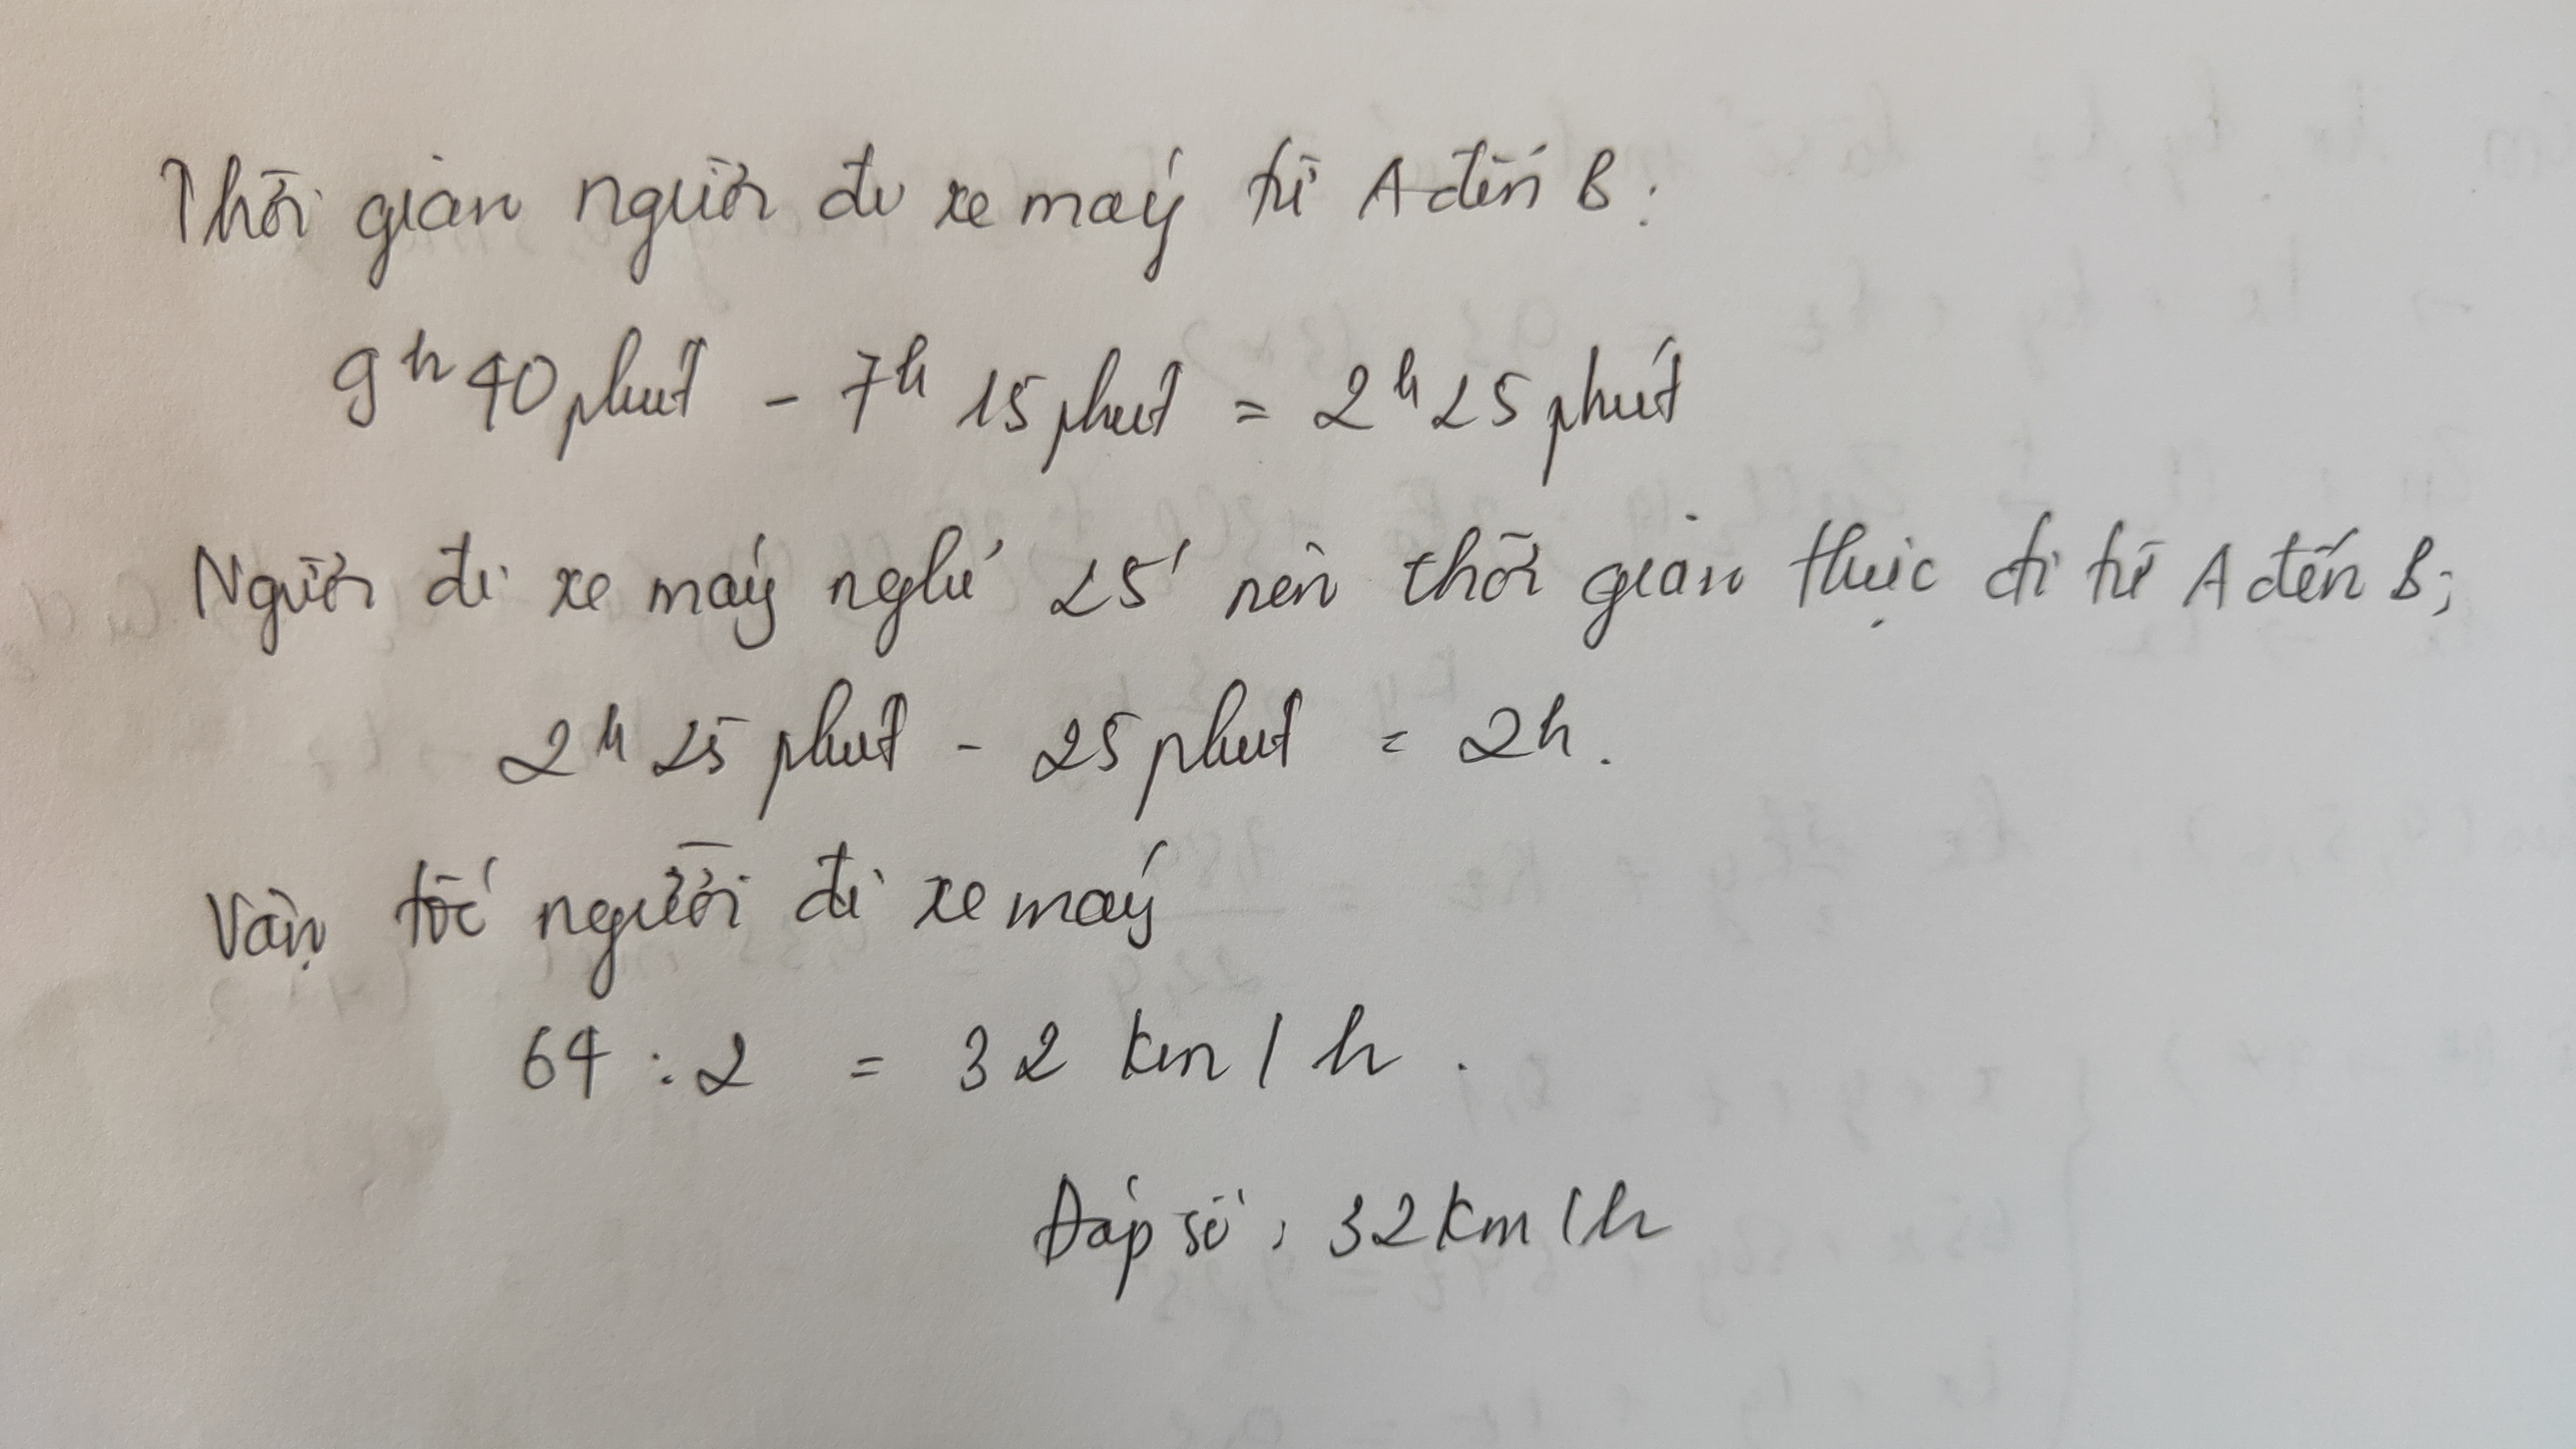 Thời gian người đi xe máy từ A đến B:
9h 40 phút - 7h 15 phút = 2h 25 phút
Người đi xe máy nghỉ 25' nên thời gian thực đi từ A đến B:
2h 25 phút - 25 phút = 2h.
Vận tốc người đi xe máy
64 : 2 = 32 km/h.
Đáp số: 32 km/h